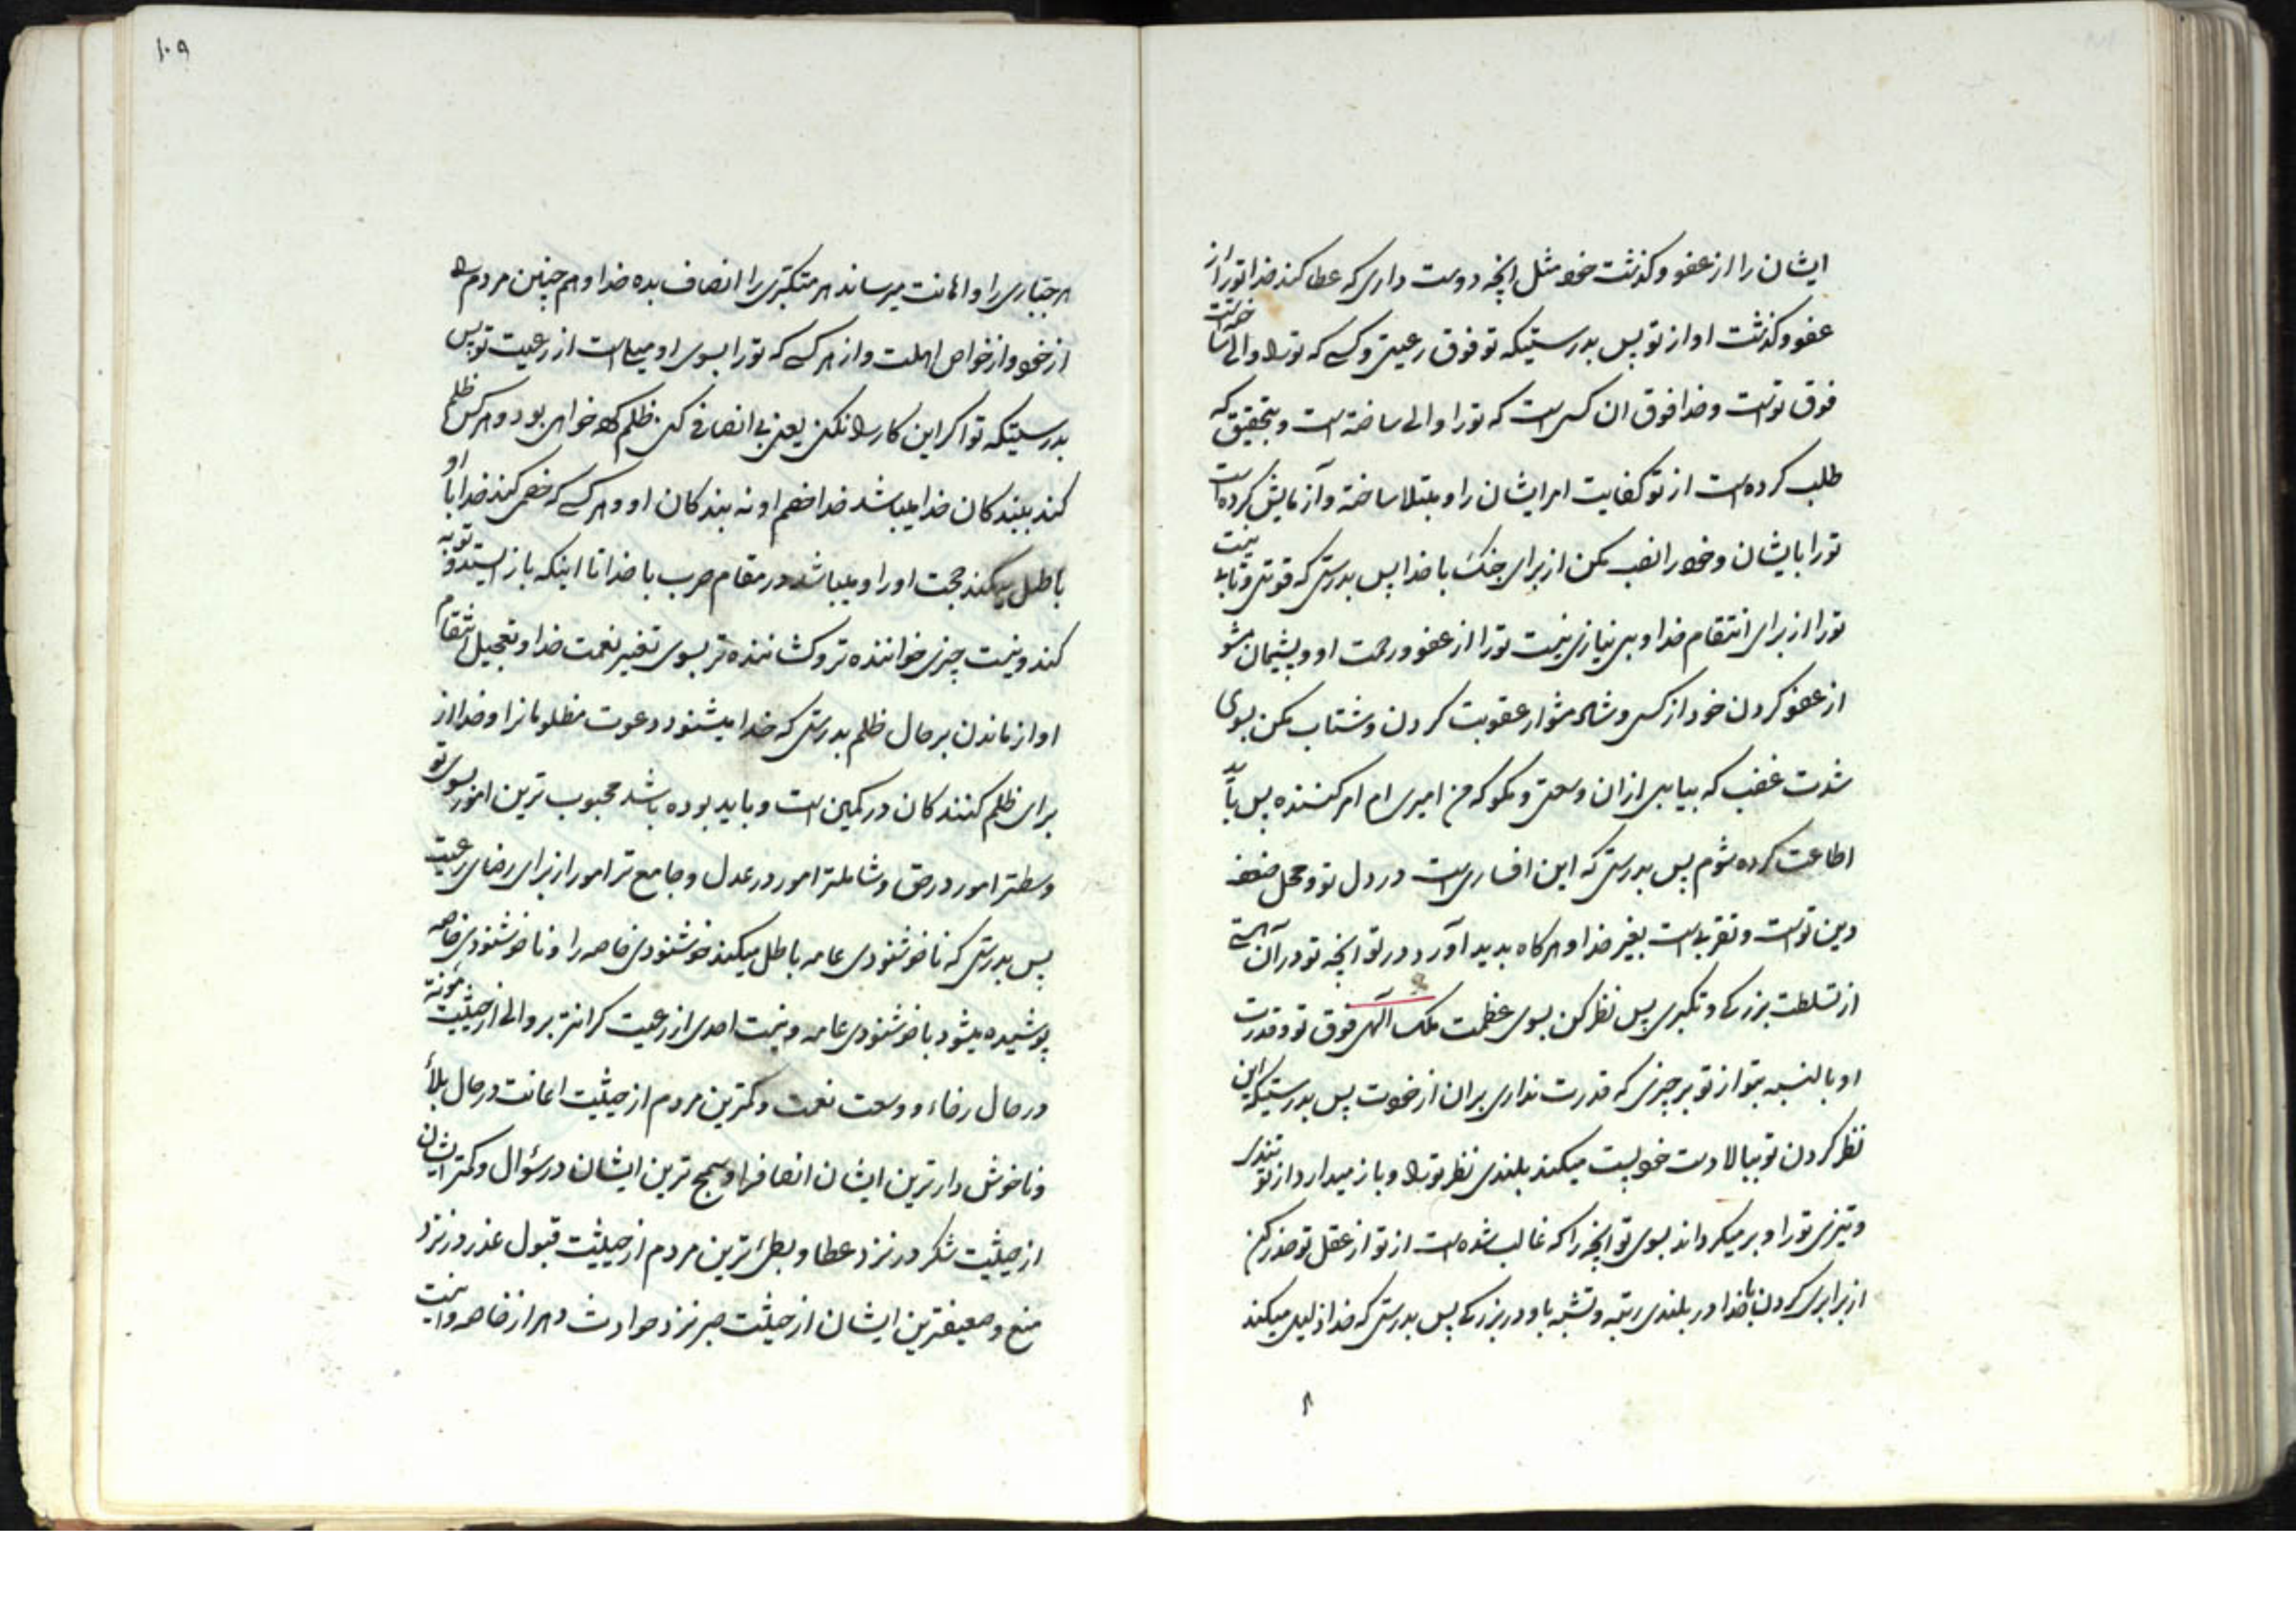 ایشان را از عفو و کذشت خود مثل انچه دوست داری که عطا کند خدا تو را از
عفو و کذشت او از تو پس بدرستیکه تو فوق رعیتی و کسی که تو را والی ساخته است
فوق تو است و خدا فوق ان کس است که تو را والی ساخته است و بتحقیق که
طلب کرده است از تو کفایت امر ایشان را و مبتلا ساخته و آزمایش کرده است
تو را بایشان و خود را نصب مکن از برای جنک با خدا پس بدرستی که قوتی و تابی نیست
تو را از برای انتقام خدا و بی نیازی نیست تو را از عفو و رحمت او و پشیمان مشو
از عفو کردن خود از کسی و شاد مشو از عقوبت کردن و شتاب مکن بسوی
شدت غضب که بیابی از ان وسعتی و مکو که من امیری ام امر کننده پس باید
اطاعت کرده شوم پس بدرستی که این افساری است در دل تو و محل ضعف
دین تو است و تقرب است بغیر خدا و هر کاه بدید آورد در تو انچه تو در آن هستی
از تسلطت بزرکی و تکبری پس نظر کن بسوی عظمت ملک آلهی فوق تو و قدرت
او بالنسبه بتو از تو بر چیزی که قدرت نداری بران از خودت پس بدرستیکه این
نظر کردن تو ببالا دست خود پست میکند بلندی نظر تو را و باز میدارد از تو تندی
و تیزی تو را و بر میکرداند بسوی تو انچه را که غالب شده است از تو از عقل تو حذر کن
از برابری کردن با خدا در بلندی رتبه و تشبه باو در بزرکی پس بدرستی که خدا ذلیل میکند
۱۰۹
هر جبّاری را و اهانت میرساند هر متکبّری را انصاف بده خدا و هم چنین مردم را
از خود و از خواص اهلت و از هر کسی که تو را بسوی او میل است از رعیت تو پس
بدرستیکه تو اکر این کار را نکنی یعنی بی انصافی کنی ظلم کرده خواهی بود و هر کس ظلم
کند ببندکان خدا میباشد خدا خصم او نه بندکان او و هر کسی که خصمی کند خدا با او
باطل میکند حجت او را و میباشد در مقام حرب با خدا تا اینکه باز ایستد و توبه
کند و نیست چیزی خواننده تر و کشاننده تر بسوی تغیر نعمت خدا و تعجیل انتقام
او از ماندن بر حال ظلم بدرستی که خدا میشنود دعوت مظلومانرا و خدا از
برای ظلم کنندکان در کمین است و باید بوده باشد محبوب ترین امور بسوی تو
وسطتر امور در حق و شاملتر امور در عدل و جامع تر امور از برای رضای رعیت
پس بدرستی که ناخوشنودی عامه باطل میکند خوشنودی خاصه را و ناخوشنودی خاصه
پوشیده میشود با خوشنودی عامه و نیست احدی از رعیت کرانتر بر والی از حیثیت مؤنة
در حال رخاء و وسعت نعمت و کمترین مردم از حیثیت اعانت در حال بلاء
و ناخوش دارترین ایشان انصاف را و سمج ترین ایشان در سؤال و کمتر ایشان
از حیثیت شکر در نزد عطا و بطئ ترین مردم از حیثیت قبول عذر در نزد
منع و ضعیفترین ایشان از حیثیت صبر نزد حوادث دهر از خاصه و نیست